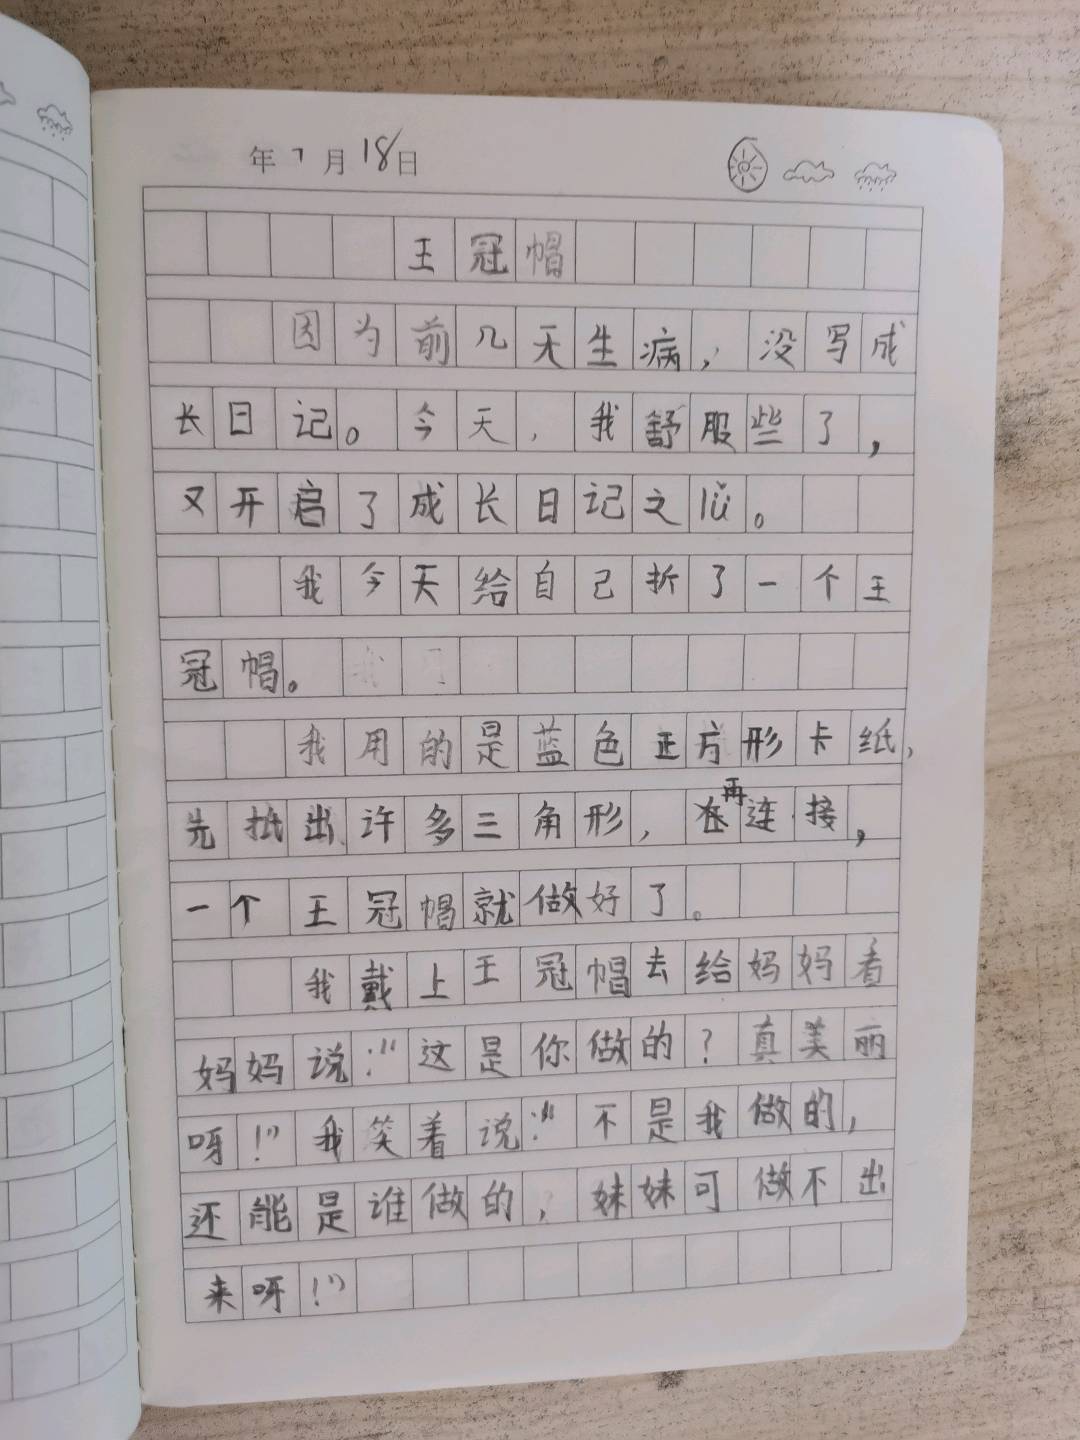 年7月18日
王冠帽
因为前几天生病，没写成
长日记。今天，我舒服些了，
又开启了成长日记之心。
我今天给自己折了一个王
冠帽。
我用的是蓝色正方形卡纸，
先抵出许多三角形，再连接，
一个王冠帽就做好了。
我戴上王冠帽去给妈妈看
妈妈说：“这是你做的？真美丽
呀！”我笑着说：“不是我做的，
还能是谁做的，妹妹可做不出
来呀！”